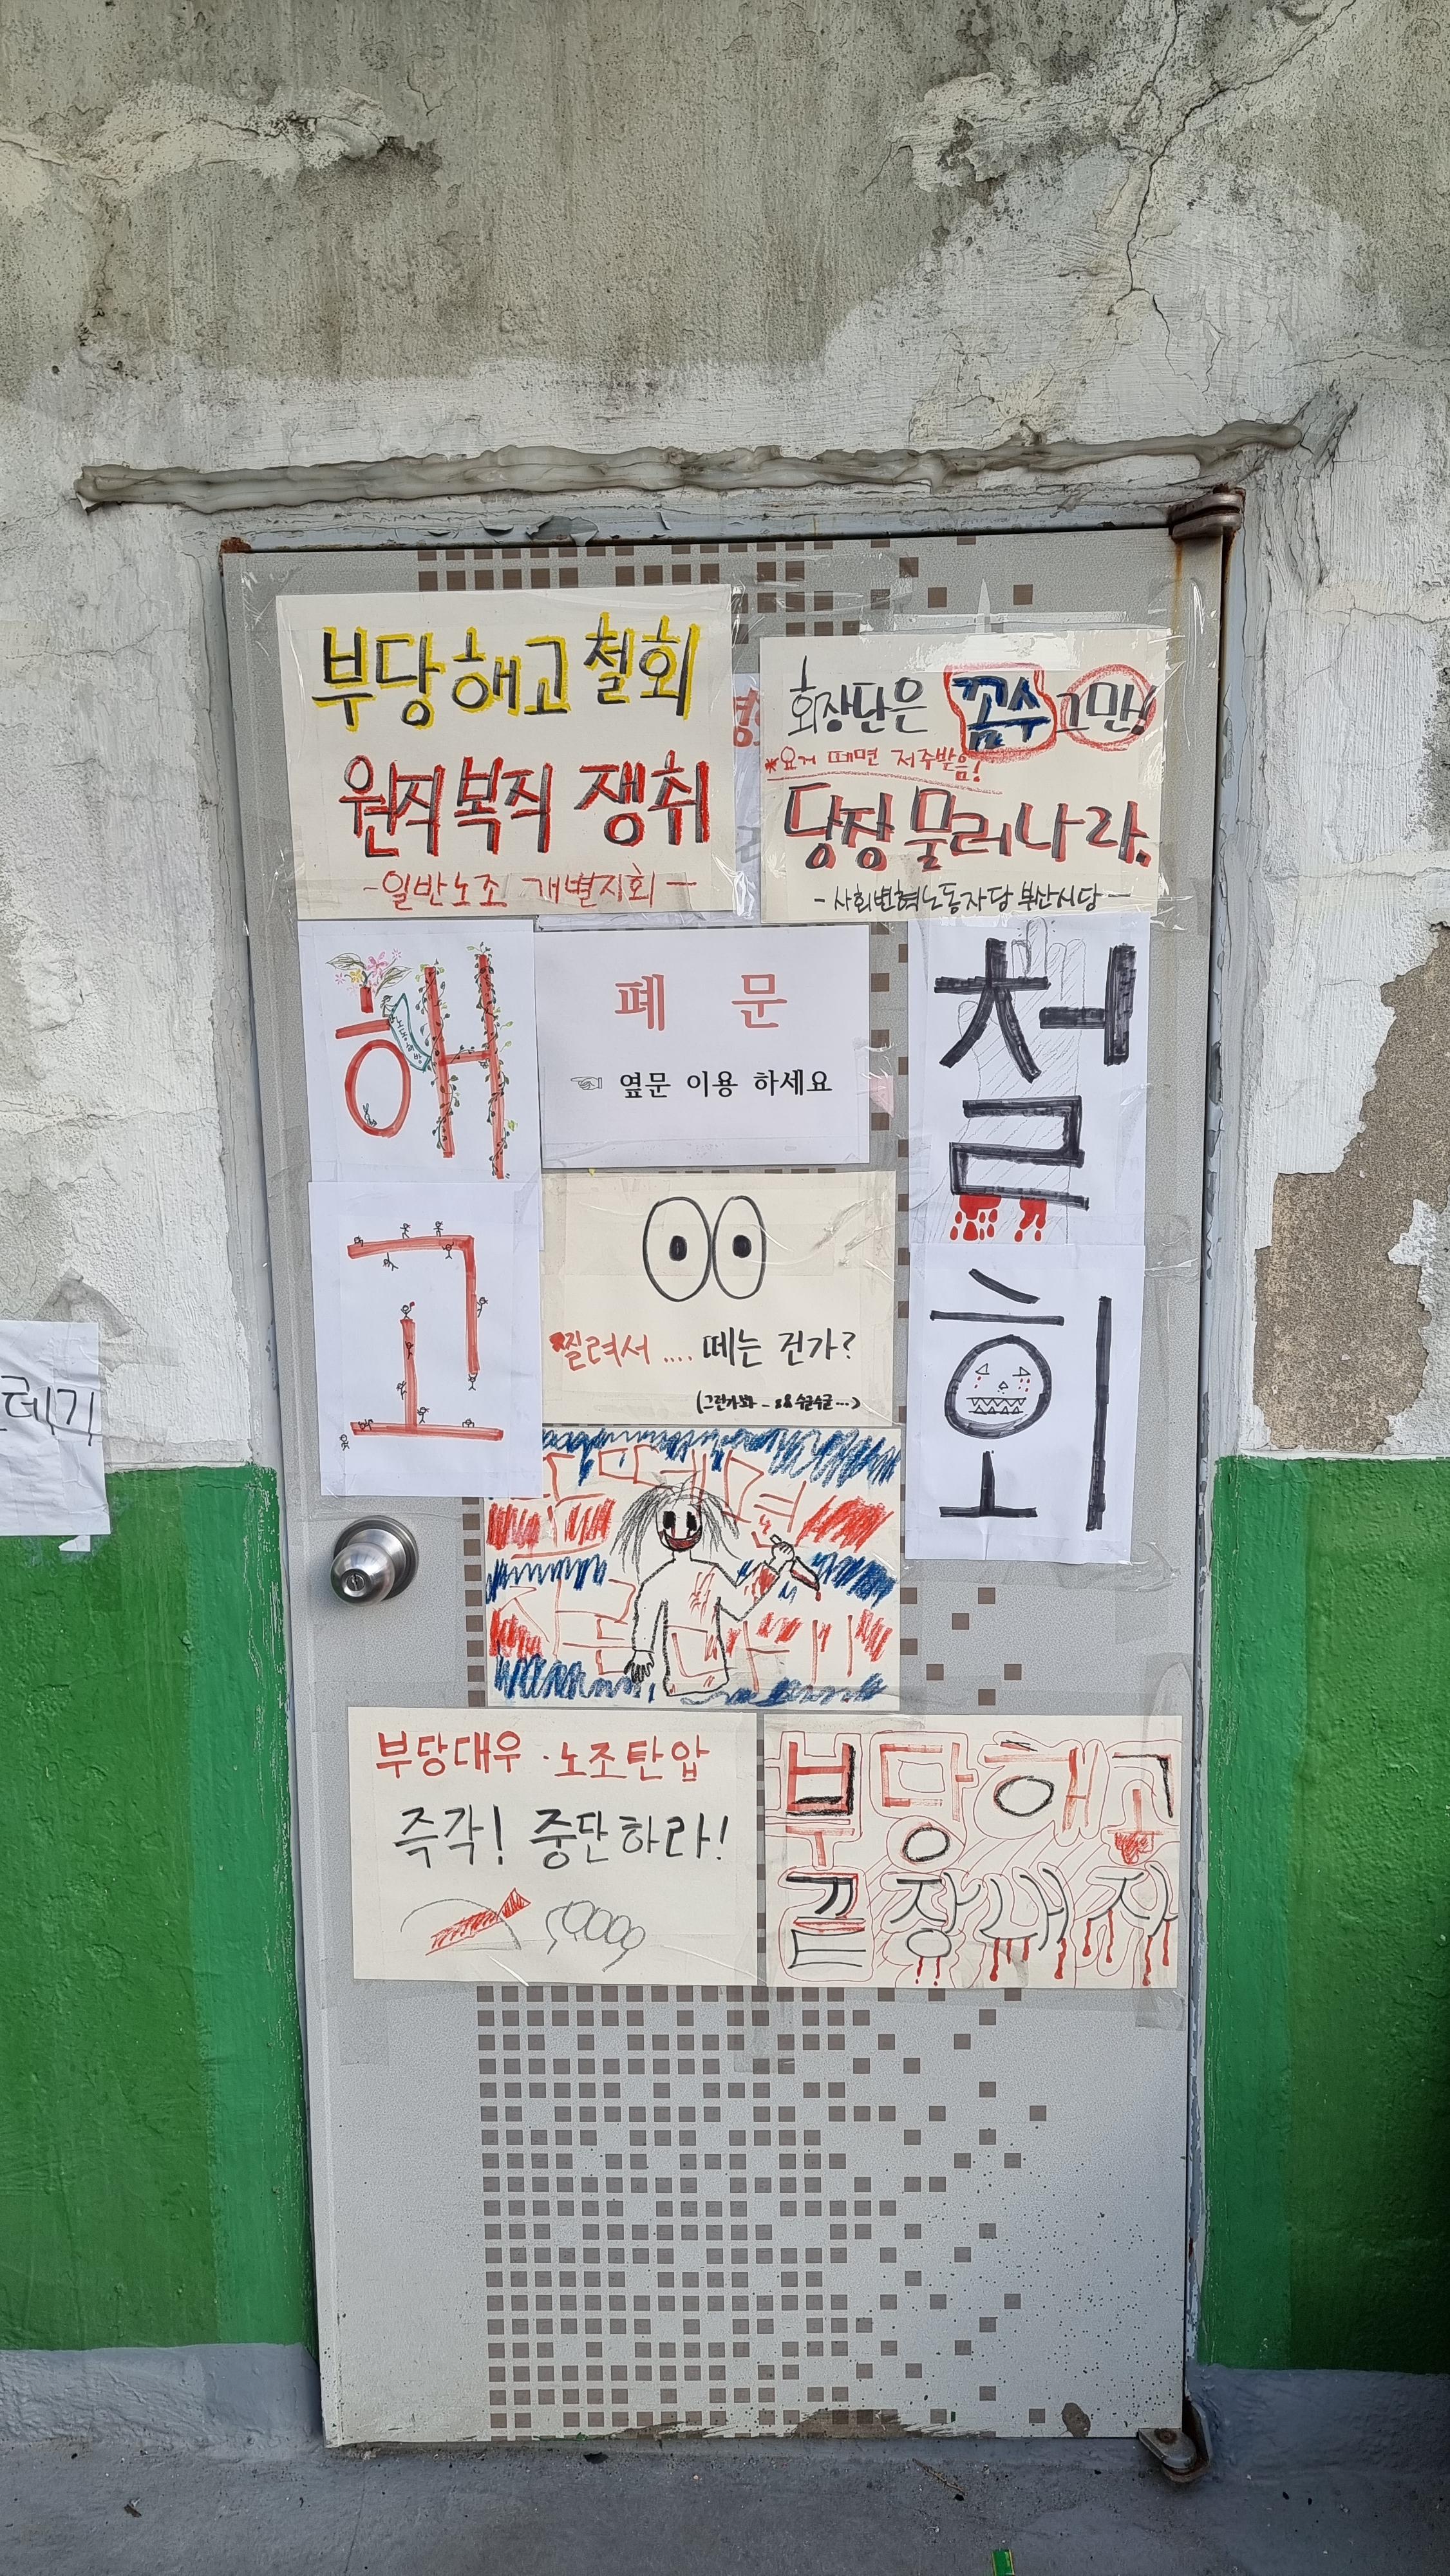 부당해고철회
원직복직 쟁취
-일반노조 개별지회-
회장단은 꼼수 그만!
*요거 떼면 저주받음!
당장 물러나라.
-사회변혁노동자당 부산시당-
해
고
폐 문
☜ 옆문 이용 하세요
철
회
찔려서.... 떼는 건가?
부당대우·노조탄압
즉각! 중단하라!
부당해고
끝장내자
레기